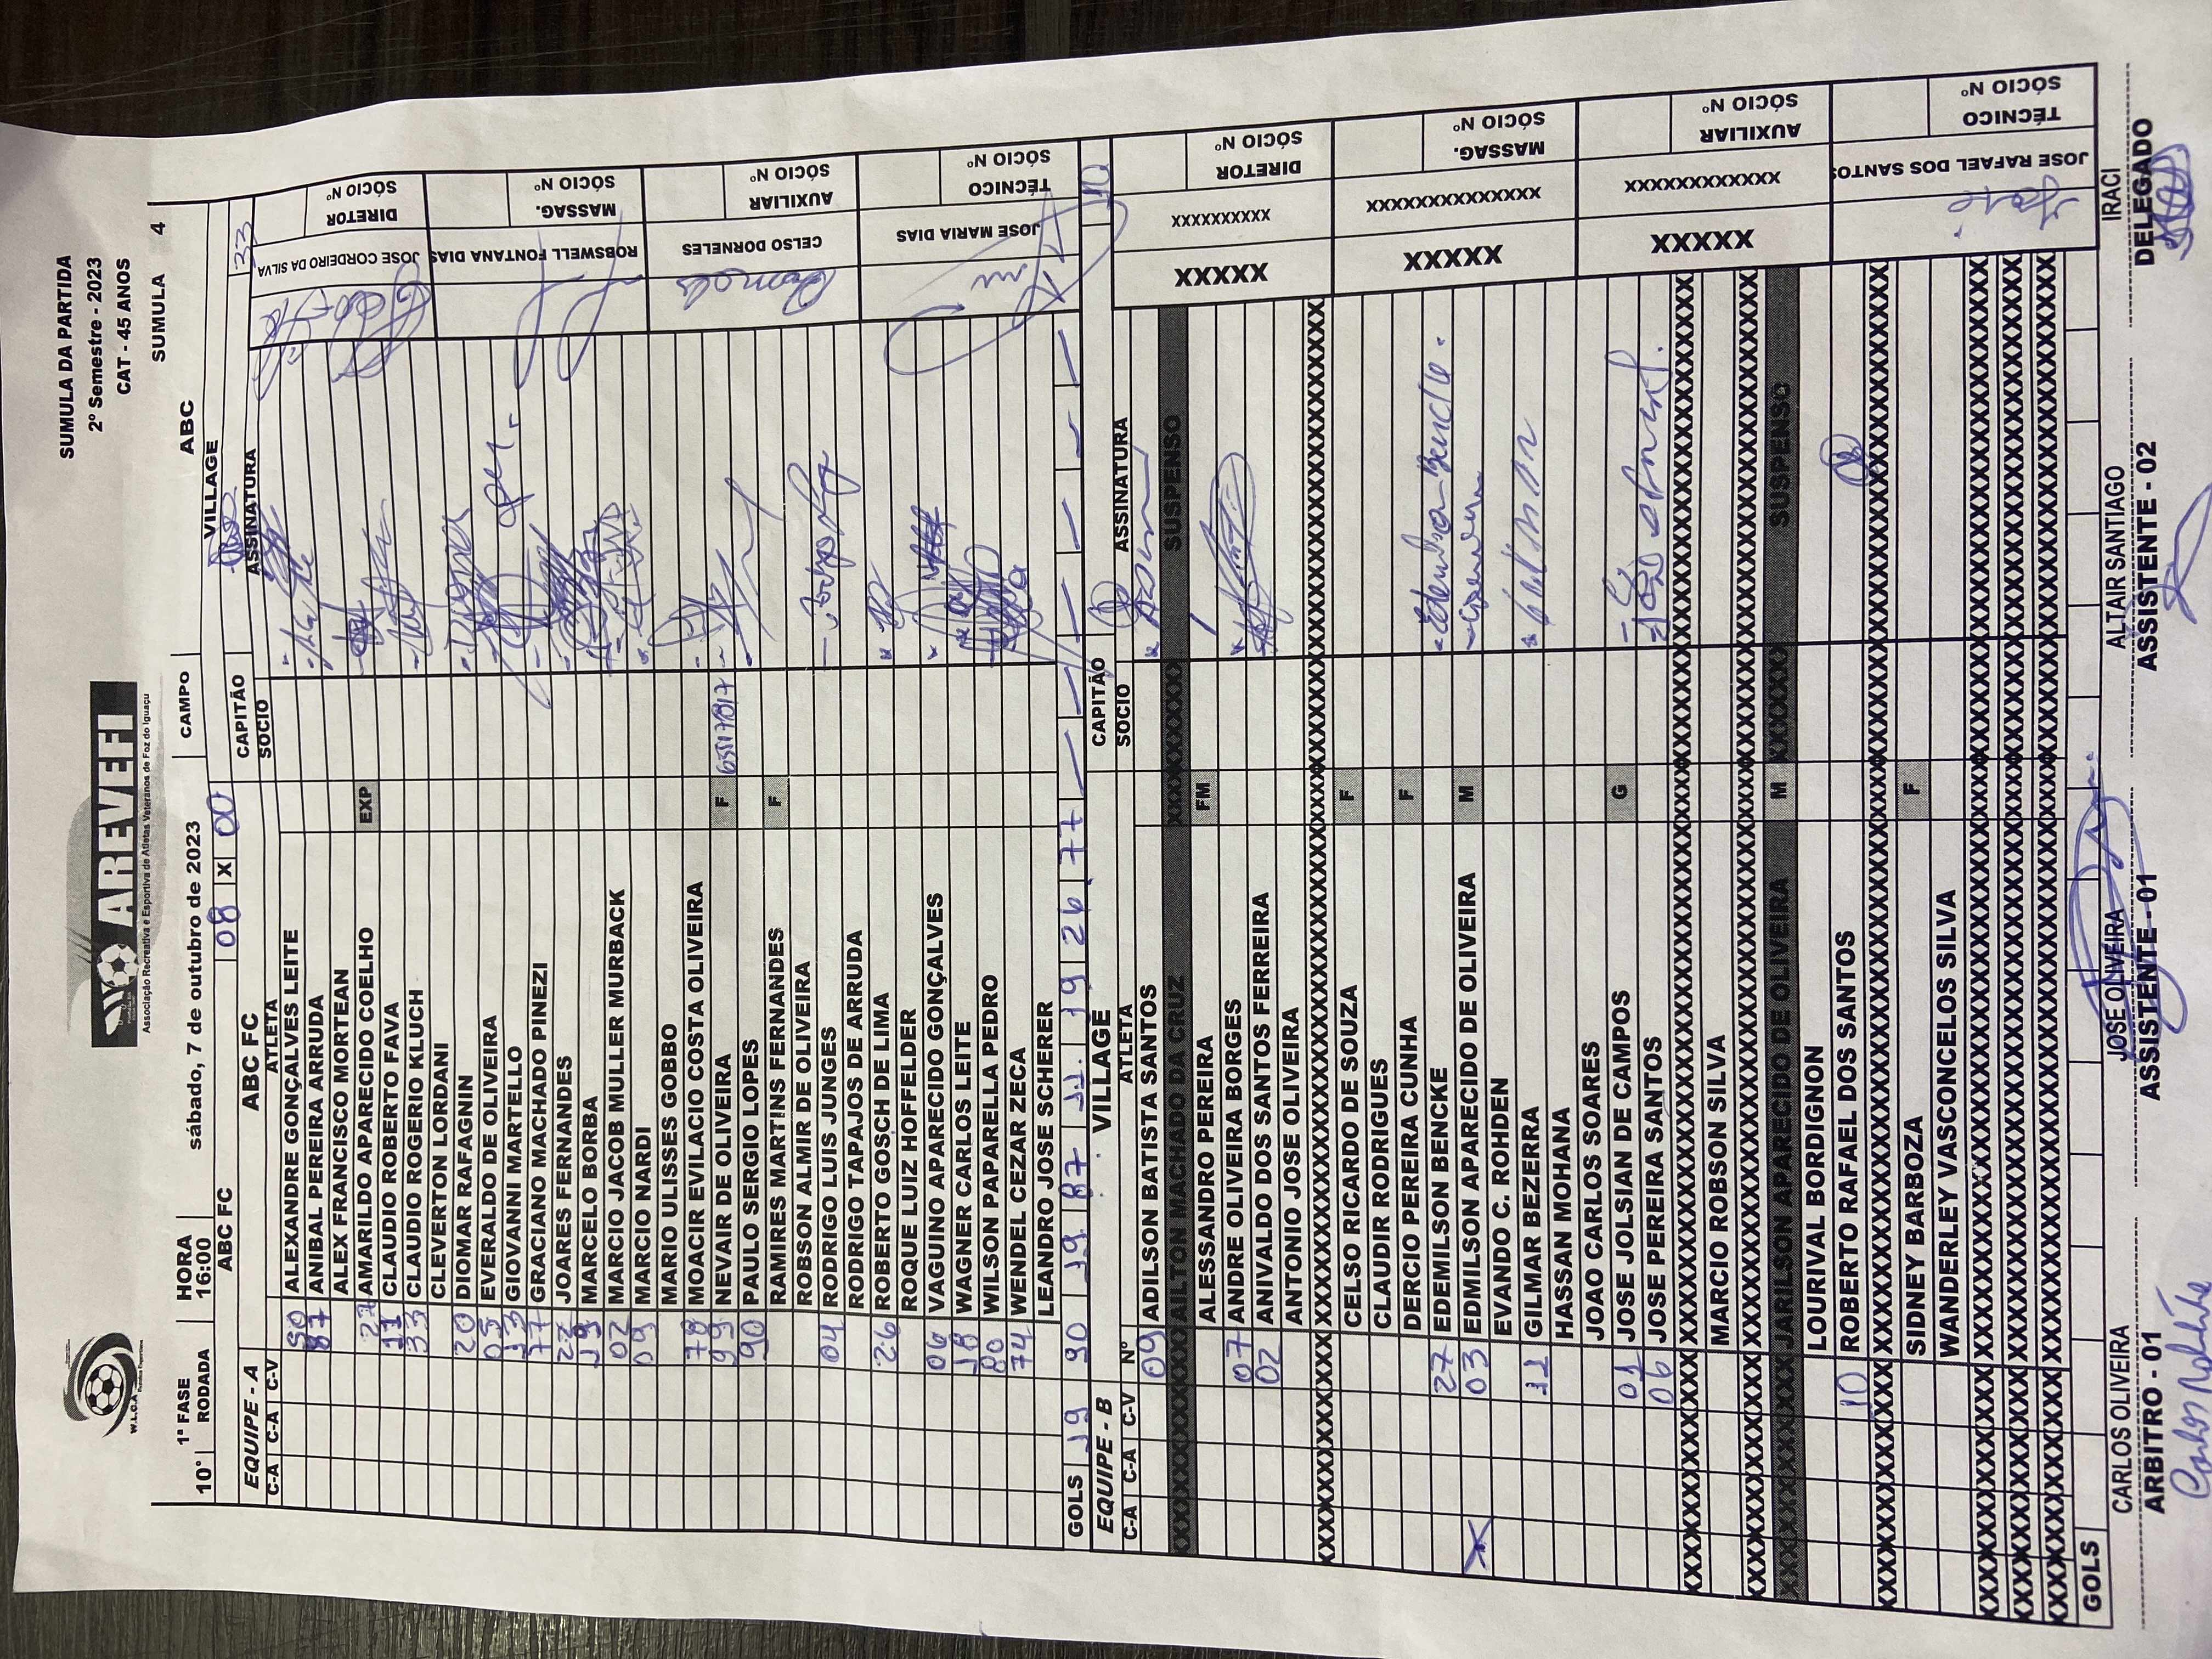 W.L.O.A
AREVEFI
Associação Recreativa e Esportiva de Atletas Veteranos de Foz do Iguaçu
SUMULA DA PARTIDA
2º Semestre - 2023
CAT - 45 ANOS
10° 1ª FASE RODADA HORA 16:00 sábado, 7 de outubro de 2023 CAMPO ABC SUMULA 4
ABC FC 08 X 00 VILLAGE
EQUIPE - A ABC FC CAPITÃO 33
C-A C-A C-V ATLETA SOCIO ASSINATURA
50 ALEXANDRE GONÇALVES LEITE
87 ANIBAL PEREIRA ARRUDA
ALEX FRANCISCO MORTEAN
27 AMARILDO APARECIDO COELHO EXP
11 CLAUDIO ROBERTO FAVA
33 CLAUDIO ROGERIO KLUCH
CLEVERTON LORDANI
20 DIOMAR RAFAGNIN
05 EVERALDO DE OLIVEIRA
13 GIOVANNI MARTELLO
77 GRACIANO MACHADO PINEZI
22 JOARES FERNANDES
19 MARCELO BORBA
02 MARCIO JACOB MULLER MURBACK
09 MARCIO NARDI
MARIO ULISSES GOBBO
78 MOACIR EVILACIO COSTA OLIVEIRA
99 NEVAIR DE OLIVEIRA F
90 PAULO SERGIO LOPES
RAMIRES MARTINS FERNANDES F
ROBSON ALMIR DE OLIVEIRA
04 RODRIGO LUIS JUNGES
RODRIGO TAPAJOS DE ARRUDA
26 ROBERTO GOSCH DE LIMA
ROQUE LUIZ HOFFELDER
06 VAGUINO APARECIDO GONÇALVES
18 WAGNER CARLOS LEITE
80 WILSON PAPARELLA PEDRO
74 WENDEL CEZAR ZECA
LEANDRO JOSE SCHERER
JOSE CORDEIRO DA SILVA DIRETOR SÓCIO Nº
ROBSWELL FONTANA DIAS MASSAG. SÓCIO Nº
CELSO DORNELES AUXILIAR SÓCIO Nº
JOSE MARIA DIAS TÉCNICO SÓCIO Nº
GOLS 19 90 19 87 11 19 26 77
EQUIPE - B VILLAGE CAPITÃO 10
C-A C-A C-V Nº ATLETA SOCIO ASSINATURA
09 ADILSON BATISTA SANTOS
XXXXXXXXXX AILTON MACHADO DA CRUZ XXXXXXXXX SUSPENSO
ALESSANDRO PEREIRA FM
07 ANDRE OLIVEIRA BORGES
02 ANIVALDO DOS SANTOS FERREIRA
ANTONIO JOSE OLIVEIRA
CELSO RICARDO DE SOUZA F
CLAUDIR RODRIGUES
DERCIO PEREIRA CUNHA F
27 EDEMILSON BENCKE
X 03 EDMILSON APARECIDO DE OLIVEIRA M
EVANDO C. ROHDEN
11 GILMAR BEZERRA
HASSAN MOHANA
JOAO CARLOS SOARES
01 JOSE JOLSIAN DE CAMPOS G
06 JOSE PEREIRA SANTOS
MARCIO ROBSON SILVA
XXXXXXXXXX JARILSON APARECIDO DE OLIVEIRA M XXXXXXX SUSPENSO
LOURIVAL BORDIGNON
10 ROBERTO RAFAEL DOS SANTOS
SIDNEY BARBOZA F
WANDERLEY VASCONCELOS SILVA
XXXXX XXXXXXXXXX DIRETOR SÓCIO Nº
XXXXX XXXXXXXXXXXXXX MASSAG. SÓCIO Nº
XXXXX XXXXXXXXXXXXX AUXILIAR SÓCIO Nº
JOSE RAFAEL DOS SANTOS TÉCNICO SÓCIO Nº
GOLS
CARLOS OLIVEIRA JOSE OLIVEIRA ALTAIR SANTIAGO IRACI
ARBITRO - 01 ASSISTENTE - 01 ASSISTENTE - 02 DELEGADO